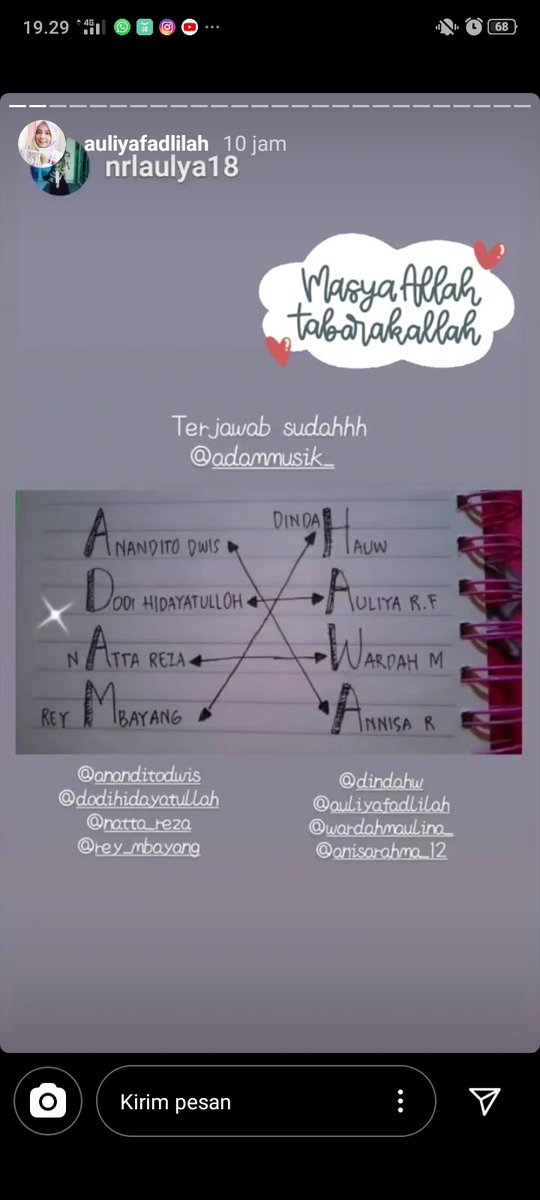 19.29 4G 68
auliyafadlilah 10 jam
nrlaulya18
Masya Allah
tabarakallah
Terjawab sudahhh
@adammusik_
ANANDITO DWIS DINDA HAUW
DODI HIDAYATULLOH AULIYA R.F
N ATTA REZA WARDAH M
REY MBAYANG ANNISA R
@ananditodwis @dindahw
@dodihidayatullah @auliyafadlilah
@natta_reza @wardahmaulina_
@rey_mbayang @anisarahma_12
Kirim pesan